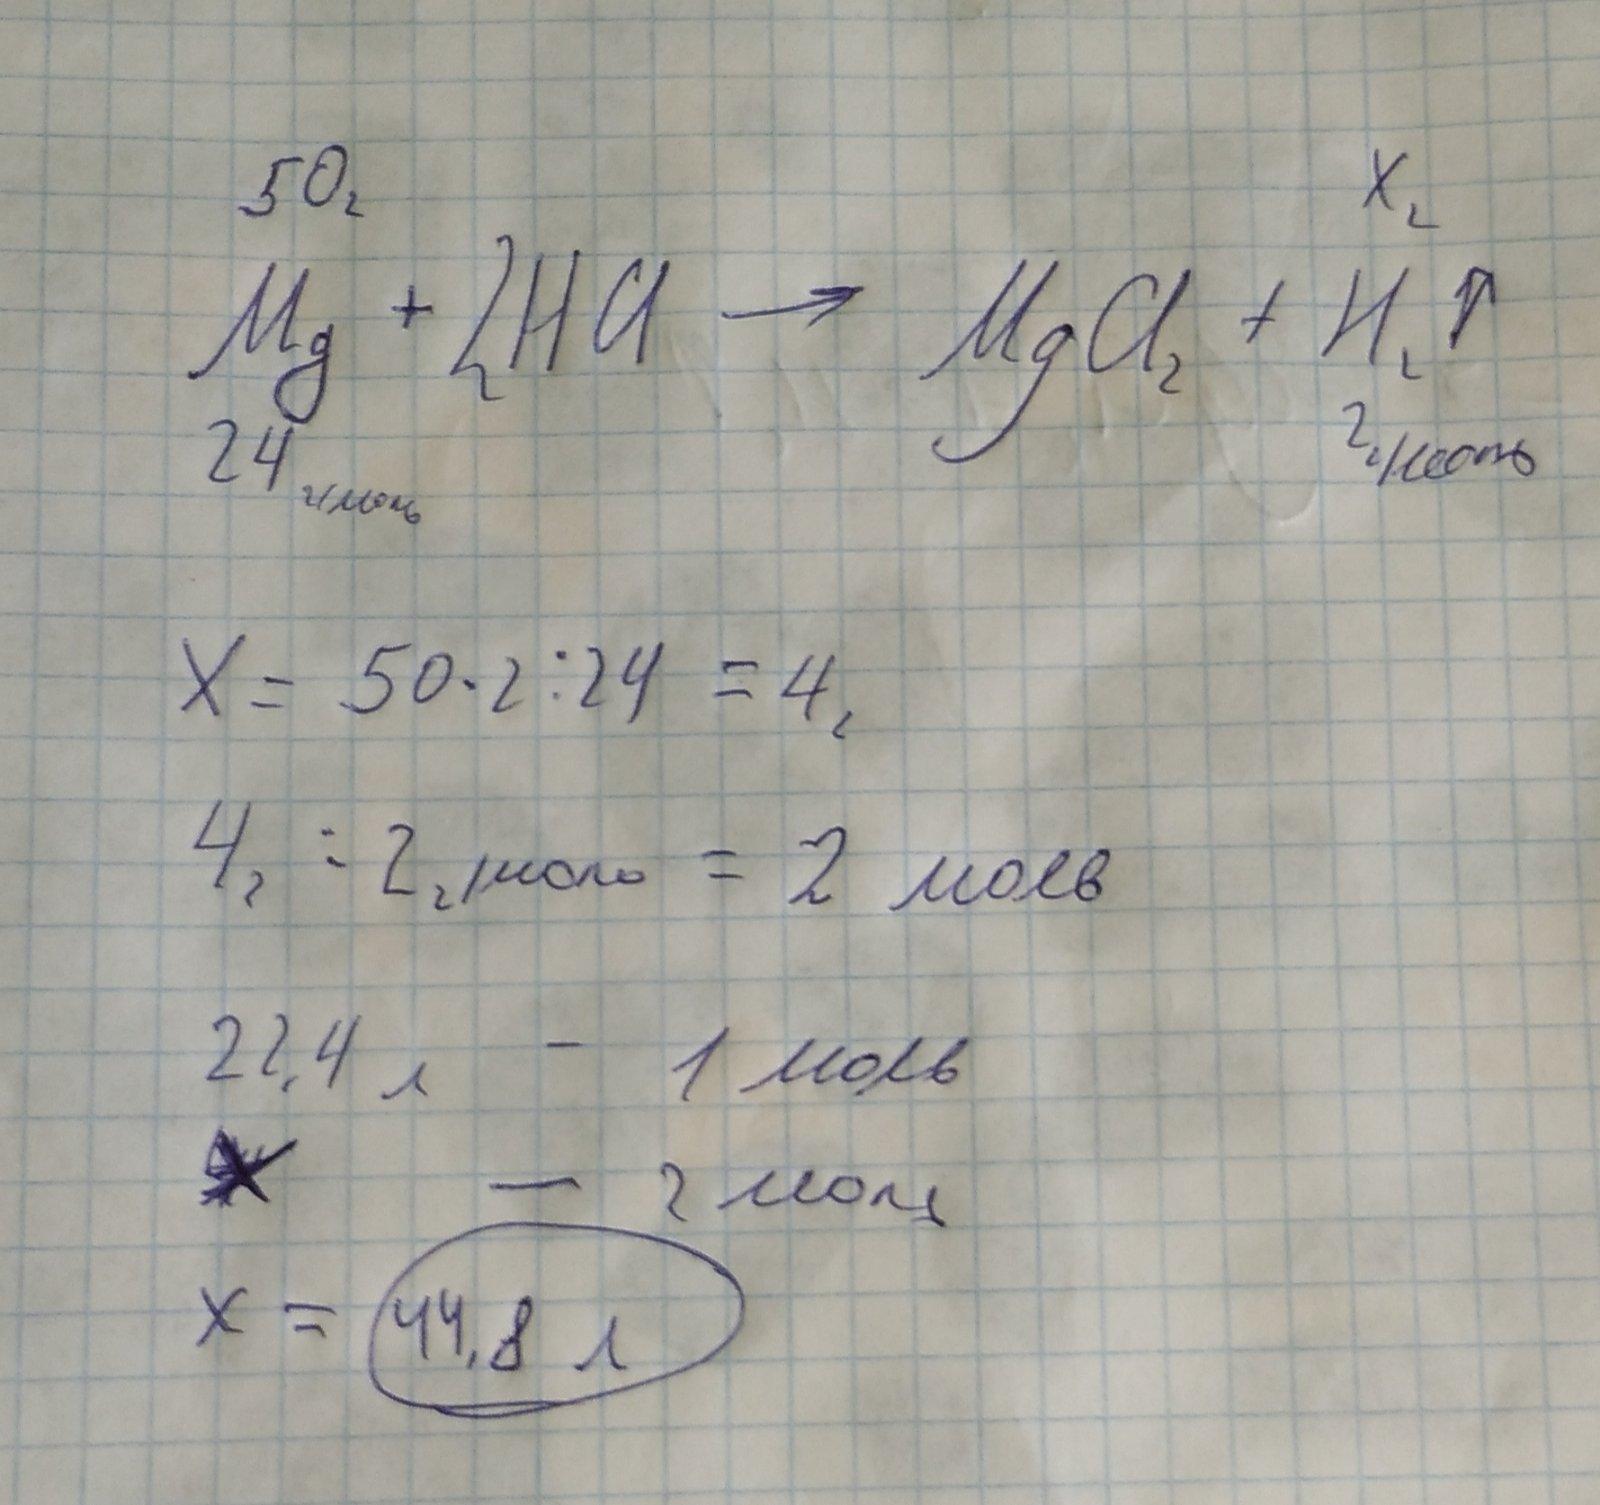 50г Xг
Mg + 2HCl → MgCl₂ + H₂↑
24 г/моль 2 г/моль
X = 50·2:24 = 4г
4г : 2 г/моль = 2 моль
22,4 л - 1 моль
x — 2 моль
x = 44,8 л